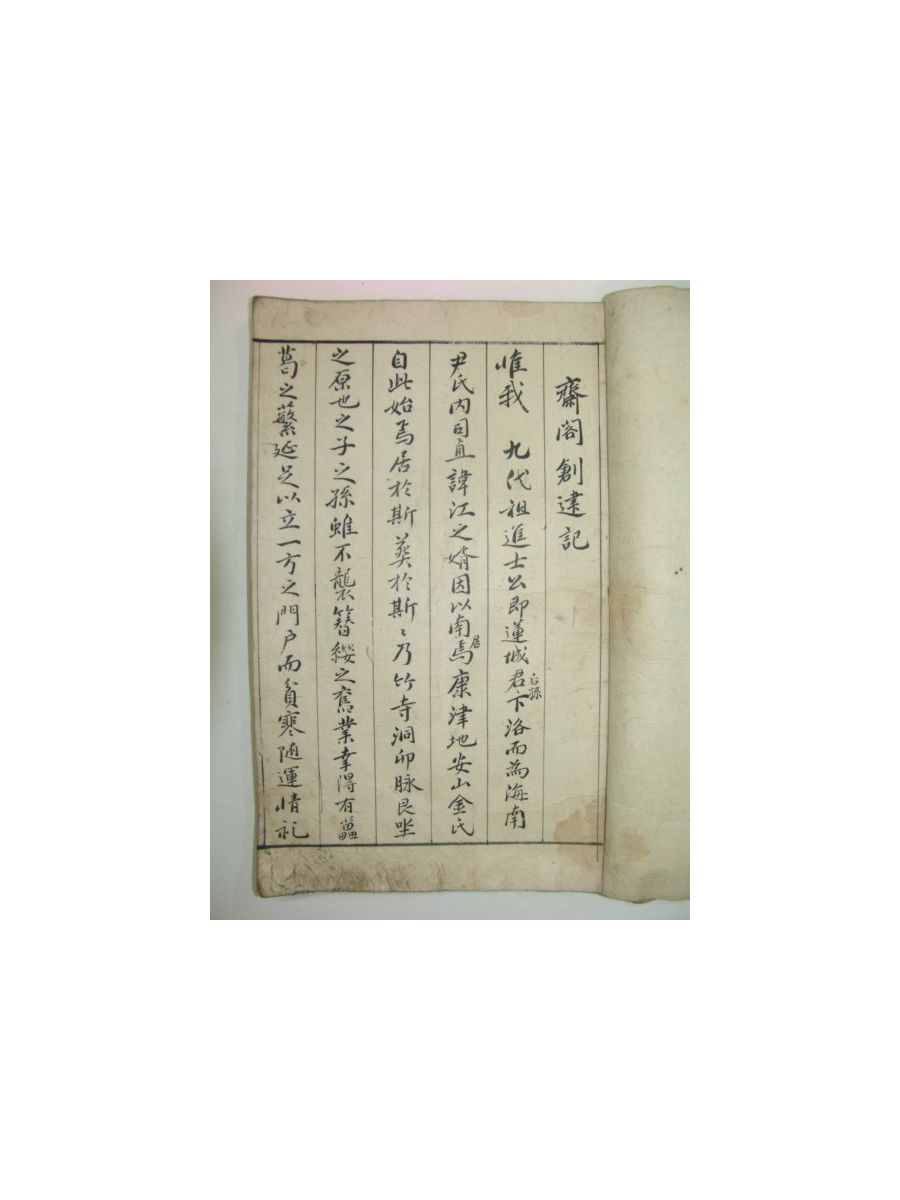 齋閣創建記
惟我 九代祖進士公即蓮城君卞洛而為海南
尹氏內司直諱江之婿因以南焉居康津地安山金氏
自此始焉居於斯葬於斯〻乃竹寺洞卯脉艮坐
之原也之子之孫雖不襲簪纓之舊業幸得有
葛之蘩延足以立一方之門戶而貧寒隨運情礼